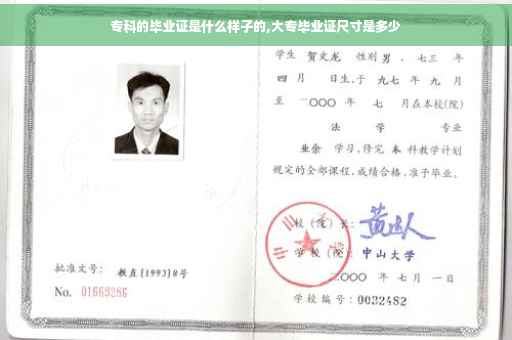 专科的毕业证是什么样子的,大专毕业证尺寸是多少
学生 贺文龙 性别男，七三 年
四 月 日生,于 九七 年 九 月
至 二〇〇〇 年 七 月在本校(院)
法 学 专业
业余 学习,修完 本 科教学计划
规定的全部课程,成绩合格,准予毕业。
校（院）长：
学校（院） 中山大学
批准文号： 教直[1993]8号
二〇〇〇 年 七 月 一 日
No. 01663286
学校编号：0032482